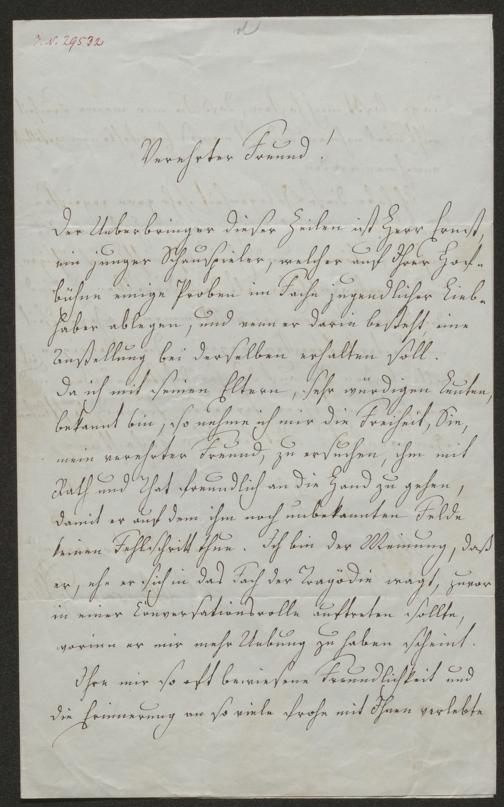 I.N. 29532
Verehrter Freund!
Der Ueberbringer dieser Zeilen ist Herr Ernst,
ein junger Schauspieler, welcher auf Ihrer Hof-
bühne einige Proben im Fache jugendlicher Lieb-
haber ablegen, und wenn er darin besteht, eine
Anstellung bei derselben erhalten soll.
Da ich mit seinen Eltern, sehr würdigen Leuten,
bekannt bin, so nehme ich mir die Freiheit, Sie,
mein verehrter Freund, zu ersuchen, ihm mit
Rath und That freundlich an die Hand zu gehen,
damit er auf dem ihm noch unbekannten Felde
keinen Fehlschritt thue. Ich bin der Meinung, daß
er, ehe er sich in das Fach der Tragödie wagt, zuvor
in einer Conversationsrolle auftreten sollte,
worinn er mir mehr Uebung zu haben scheint.
Ihre mir so oft bewiesene Freundlichkeit und
die Erinnerung an so viele frohe mit Ihnen verlebte